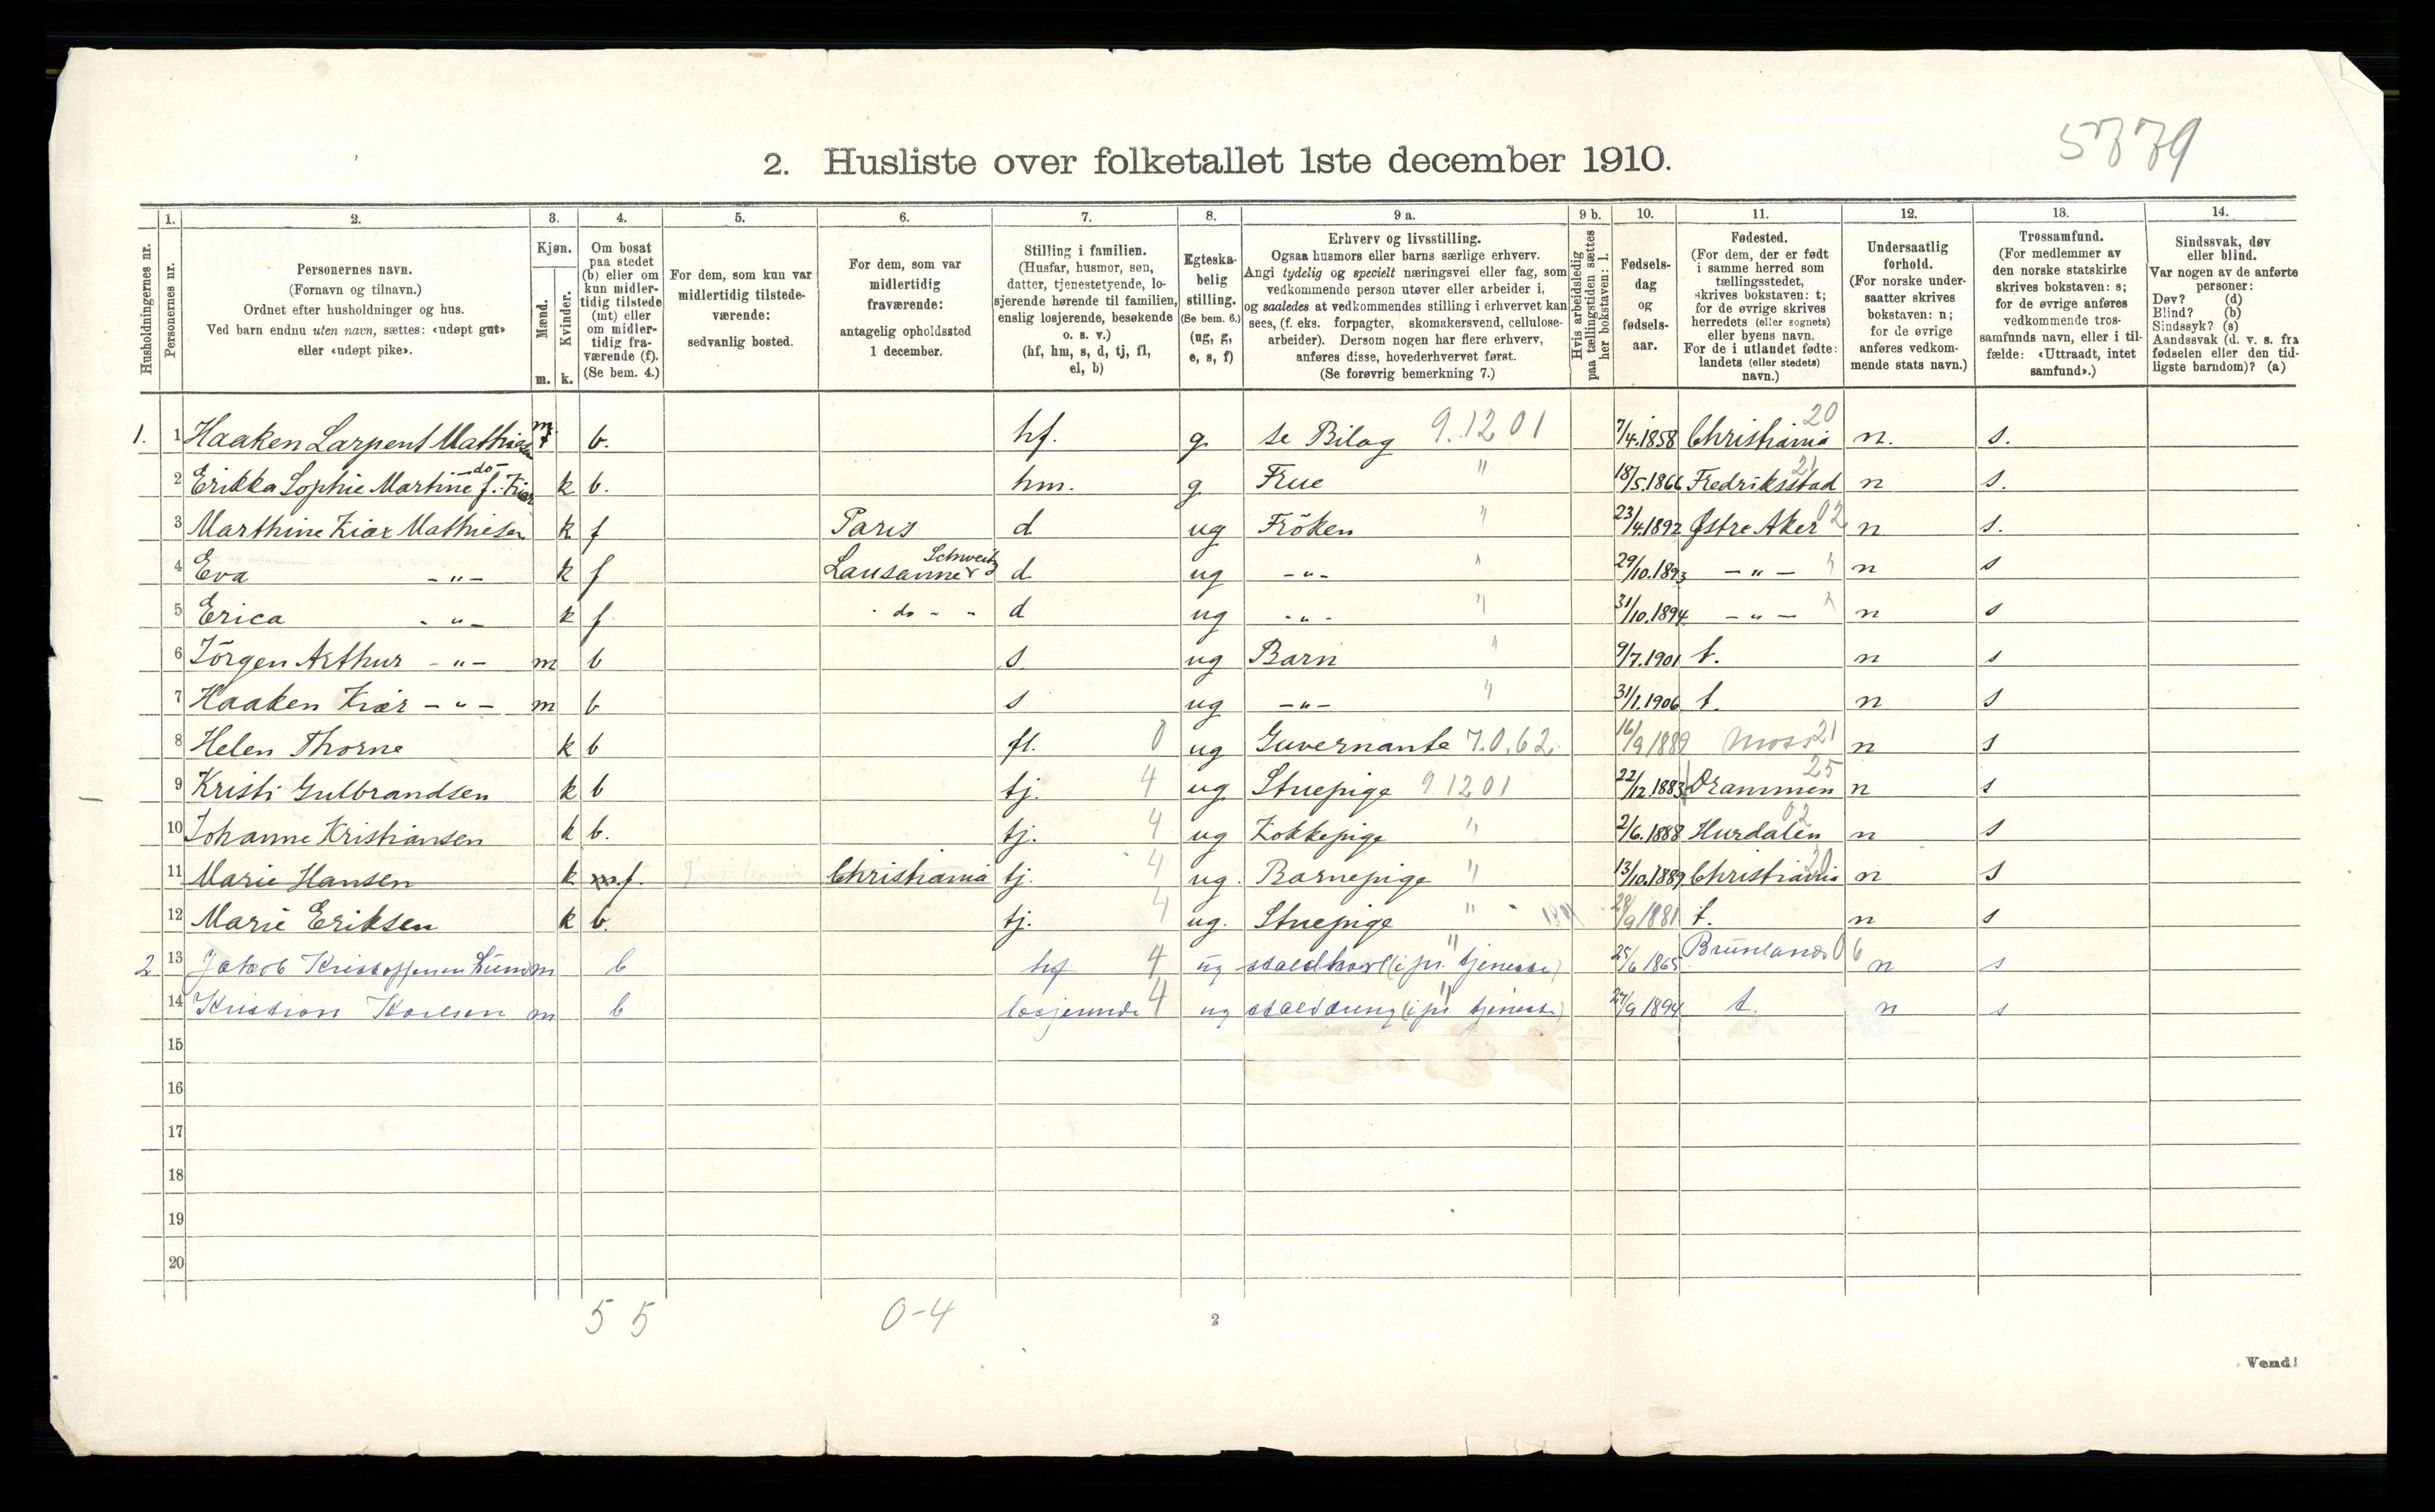 5779
2. Husliste over folketallet 1ste december 1910.
Husholdningernes nr.
1.
Personernes nr.
2.
Personernes navn.
(Fornavn og tilnavn.)
Ordnet efter husholdninger og hus.
Ved barn endnu uten navn, sættes: «udøpt gut»
eller «udøpt pike».
3.
Kjøn.
Mænd.
Kvinder.
m. k.
4.
Om bosat
paa stedet
(b) eller om
kun midler-
tidig tilstede
(mt) eller
om midler-
tidig fra-
værende (f).
(Se bem. 4.)
5.
For dem, som kun var
midlertidig tilstede-
værende:
sedvanlig bosted.
6.
For dem, som var
midlertidig
fraværende:
antagelig opholdssted
1 december.
7.
Stilling i familien.
(Husfar, husmor, søn,
datter, tjenestetyende, lo-
sjerende hørende til familien,
enslig losjerende, besøkende
o. s. v.)
(hf, hm, s, d, tj, fl,
el, b)
8.
Egteska-
belig
stilling.
(Se bem. 6.)
(ug, g,
e, s, f)
9 a.
Erhverv og livsstilling.
Ogsaa husmors eller barns særlige erhverv.
Angi tydelig og specielt næringsvei eller fag, som
vedkommende person utøver eller arbeider i,
og saaledes at vedkommendes stilling i erhvervet kan
sees, (f. eks. forpagter, skomakersvend, cellulose-
arbeider). Dersom nogen har flere erhverv,
anføres disse, hovederhvervet først.
(Se forøvrig bemerkning 7.)
9 b.
Hvis arbeidsledig
paa tællingstiden sættes
her bokstaven: l.
10.
Fødsels-
dag
og
fødsels-
aar.
11.
Fødested.
(For dem, der er født
i samme herred som
tællingsstedet,
skrives bokstaven: t;
for de øvrige skrives
herredets (eller sognets)
eller byens navn.
For de i utlandet fødte:
landets (eller stedets)
navn.)
12.
Undersaatlig
forhold.
(For norske under-
saatter skrives
bokstaven: n;
for de øvrige
anføres vedkom-
mende stats navn.)
13.
Trossamfund.
(For medlemmer av
den norske statskirke
skrives bokstaven: s;
for de øvrige anføres
vedkommende tros-
samfunds navn, eller i til-
fælde: «Uttraadt, intet
samfund».)
14.
Sindssvak, døv
eller blind.
Var nogen av de anførte
personer:
Døv? (d)
Blind? (b)
Sindssyk? (s)
Aandssvak (d. v. s. fra
fødselen eller den tid-
ligste barndom)? (a)
1. 1 Haaken Larpent Mathiesen m b. hf. g. se Bilag 9.12 01 7/4.1858 Christiania 20 n. s.
2 Erikka Sophie Martine -do- f. Kiær k b. hm. g Frue " 18/5.1866 Fredriksstad 21 n s.
3 Marthine Kiær Mathiesen k f Paris d ug Fröken " 23/4.1892 Østre Aker 02 n s.
4 Eva - " - k f Lausanne Schweitz d ug - " - " 29/10.1893 - " - " n s
5 Erica - " - k f - do - - d ug - " - " 31/10.1894 - " - " n s
6 Jörgen Arthur - " - m b s ug Barn " 9/7.1901 t. n s
7 Haaken Kiær - " - m b s ug - " - " 31/1.1906 t. n s
8 Helen Thorne k b fl. 0 ug Guvernante 7.0.62 16/9 1889 Moss 21 n s
9 Kristi Gulbrandsen k b tj. 4 ug Stuepige 9 12 01 22/12.1883 Drammen 25 n s
10 Johanne Kristiansen k b. tj. 4 ug Kokkepige " 2/6.1888 Hurdalen 02 n s
11 Marie Hansen k f. Christiania tj. 4 ug. Barnepige " 13/10.1889 Christiania 20 n s
12 Marie Eriksen k b. tj. 4 ug. Stuepige " 28/9 1881 t. n s
2 13 Jakob Kristoffersen Lund m b hf 4 ug staldkarl (i pr. tjeneste) " 25/6 1865 Brunlanæs 06 n s
14 Kristian Karlsen m b losjerende 4 ug stalddreng (i pr. tjeneste) " 27/9 1894 t. n s
15
16
17
18
19
20
5 5 0-4
2
Vend!